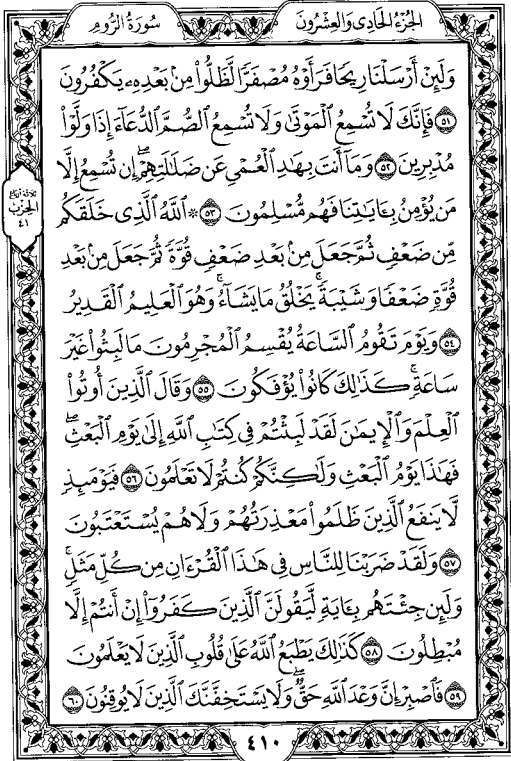 الجُزْءُ الحَادِى وَالعِشْرُونَ
سُورَةُ الرُّومِ
وَلَئِنْ أَرْسَلْنَا رِيحًا فَرَأَوْهُ مُصْفَرًّا لَّظَلُّوا۟ مِنۢ بَعْدِهِۦ يَكْفُرُونَ
٥١ فَإِنَّكَ لَا تُسْمِعُ ٱلْمَوْتَىٰ وَلَا تُسْمِعُ ٱلصُّمَّ ٱلدُّعَآءَ إِذَا وَلَّوْا۟
مُدْبِرِينَ ٥٢ وَمَآ أَنتَ بِهَٰدِ ٱلْعُمْىِ عَن ضَلَٰلَتِهِمْ ۖ إِن تُسْمِعُ إِلَّا
مَن يُؤْمِنُ بِـَٔايَٰتِنَا فَهُم مُّسْلِمُونَ ٥٣ ۞ ٱللَّهُ ٱلَّذِى خَلَقَكُم
مِّن ضَعْفٍ ثُمَّ جَعَلَ مِنۢ بَعْدِ ضَعْفٍ قُوَّةً ثُمَّ جَعَلَ مِنۢ بَعْدِ
قُوَّةٍ ضَعْفًا وَشَيْبَةً ۚ يَخْلُقُ مَا يَشَآءُ ۖ وَهُوَ ٱلْعَلِيمُ ٱلْقَدِيرُ
٥٤ وَيَوْمَ تَقُومُ ٱلسَّاعَةُ يُقْسِمُ ٱلْمُجْرِمُونَ مَا لَبِثُوا۟ غَيْرَ
سَاعَةٍ ۚ كَذَٰلِكَ كَانُوا۟ يُؤْفَكُونَ ٥٥ وَقَالَ ٱلَّذِينَ أُوتُوا۟
ٱلْعِلْمَ وَٱلْإِيمَٰنَ لَقَدْ لَبِثْتُمْ فِى كِتَٰبِ ٱللَّهِ إِلَىٰ يَوْمِ ٱلْبَعْثِ ۖ
فَهَٰذَا يَوْمُ ٱلْبَعْثِ وَلَٰكِنَّكُمْ كُنتُمْ لَا تَعْلَمُونَ ٥٦ فَيَوْمَئِذٍ
لَّا يَنفَعُ ٱلَّذِينَ ظَلَمُوا۟ مَعْذِرَتُهُمْ وَلَا هُمْ يُسْتَعْتَبُونَ
٥٧ وَلَقَدْ ضَرَبْنَا لِلنَّاسِ فِى هَٰذَا ٱلْقُرْءَانِ مِن كُلِّ مَثَلٍ ۚ
وَلَئِن جِئْتَهُم بِـَٔايَةٍ لَّيَقُولَنَّ ٱلَّذِينَ كَفَرُوٓا۟ إِنْ أَنتُمْ إِلَّا
مُبْطِلُونَ ٥٨ كَذَٰلِكَ يَطْبَعُ ٱللَّهُ عَلَىٰ قُلُوبِ ٱلَّذِينَ لَا يَعْلَمُونَ
٥٩ فَٱصْبِرْ إِنَّ وَعْدَ ٱللَّهِ حَقٌّ ۖ وَلَا يَسْتَخِفَّنَّكَ ٱلَّذِينَ لَا يُوقِنُونَ ٦٠
ثلاثة أرباع
الحزب
٤١
٤١٠